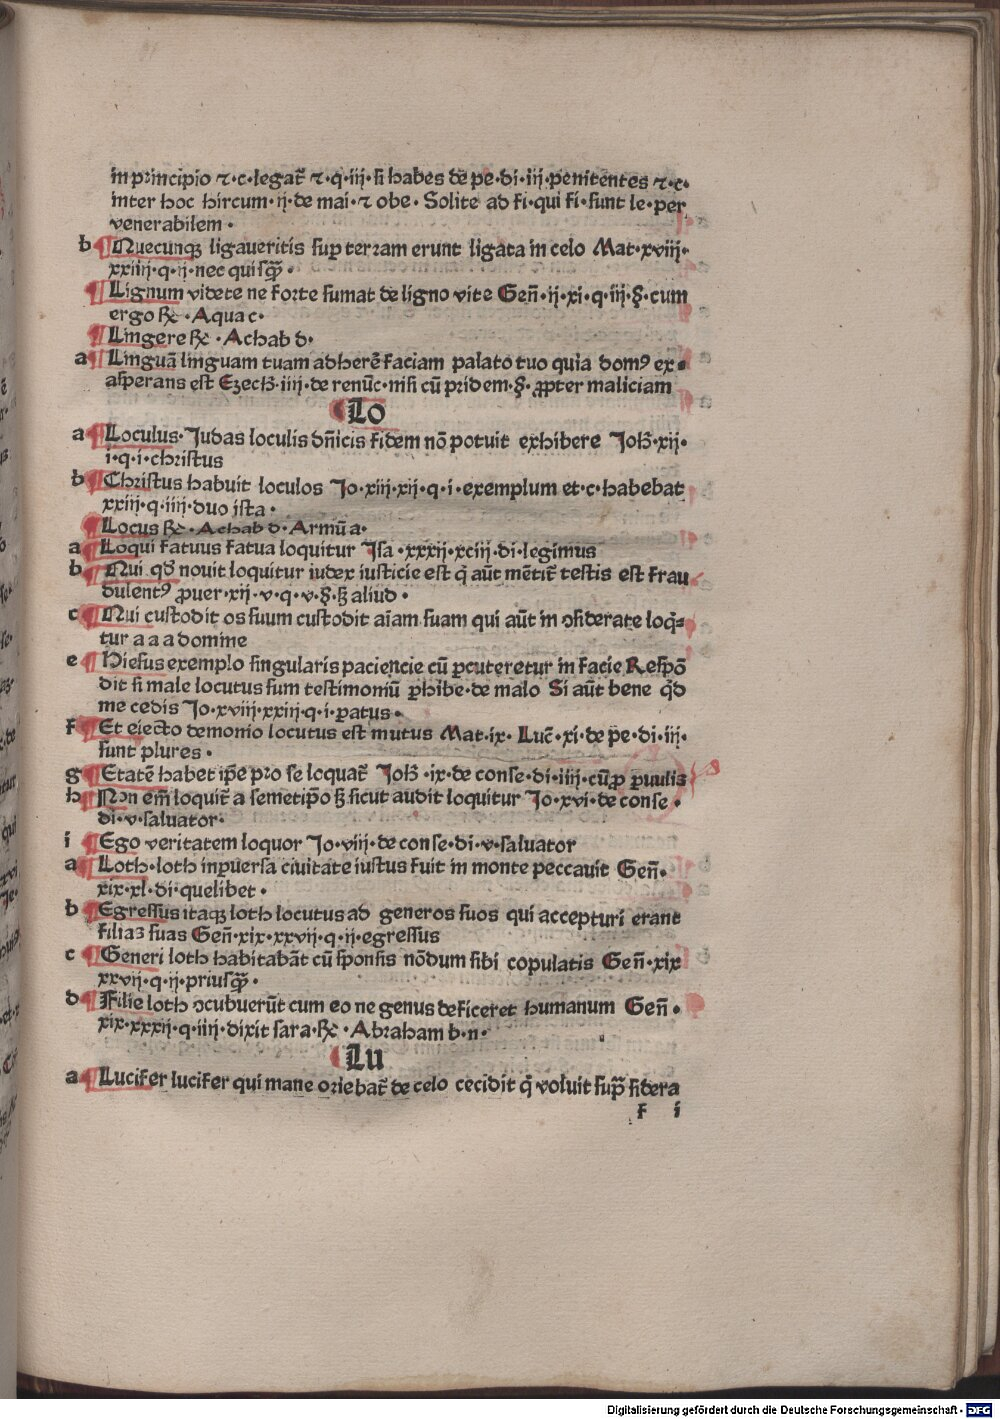 in principio ⁊·c·legat᷑ ⁊·q·iij·ſi habes de pe·di·iij·penitentes ⁊·c·
inter hoc hircum·ij·de mai·⁊ obe· Solite ad fi·qui fi·ſunt le·per
venerabilem·
b Quecunqꝫ ligaueritis ſup terram erunt ligata in celo Mat·xviij·
xxiiij·q·ij·nec quiſꝙ̃·
Lignum videte ne forte ſumat de ligno vite Geñ·ij·xi·q·iij·§·cum
ergo R̃c·Aqua c·
Lingere R̃c·Achab d·
a Linguã linguam tuam adherẽ faciam palato tuo quia domꝰ ex⸗
aſperans eſt Ezech·iiij·de renũc·niſi cũ pridem·§·ꝓpter maliciam
Lo
a Loculus·Judas loculis dñicis fidem nõ potuit exhibere Joh·xij·
i·q·i·chriſtus
b Chriſtus habuit loculos Jo·xiij·xij·q·i·exemplum et·c·habebat
xxiij·q·iiij·duo iſta·
Locus R̃c·Achab d·Armũ a·
a Loqui fatuus fatua loquitur Iſa·xxxij·xciij·di·legimus
b Qui qđ nouit loquitur iudex iuſticie eſt q̃ aũt mẽtit᷑ teſtis eſt frau
dulentꝰ ꝓuer·xij·v·q·v·§·ꝫ aliud·
c Qui cuſtodit os ſuum cuſtodit aĩam ſuam qui aũt in ꝯſiderate loq̃⸗
tur a a a domine
e Hieſus exemplo ſingularis paciencie cũ ꝑcuteretur in facie Reſpõ
dit ſi male locutus ſum teſtimoniũ ꝑhibe·de malo Si aũt bene q̃d
me cedis Jo·xviij·xxiij·q·i·ꝑatus·
f Et eiecto demonio locutus eſt mutus Mat·ix· Luc̃·xi·de pe·di·iij·
ſunt plures·
g Etatẽ habet ip̃e pro ſe loquat᷑ Joh·ix·de conſe·di·iiij·cũ ꝓ ꝑuulis
h Non em̃ loquit᷑ a ſemetip̃o ꝫ ſicut audit loquitur Jo·xvi·de conſe·
di·v·ſaluator·
i Ego veritatem loquor Jo·viij·de conſe·di·v·ſaluator
a Loth·loth in ꝑuerſa ciuitate iuſtus fuit in monte peccauit Geñ·
xix·xl·di·quelibet·
b Egreſſus itaqꝫ loth locutus ad generos ſuos qui accepturi erant
filias ſuas Geñ·xix·xxvij·q·ij·egreſſus
c Generi loth habitabãt cũ ſponſis nõdum ſibi copulatis Geñ·xix
xxvij·q·ij·priuſꝙ̃·
d Filie loth ꝯcubuerũt cum eo ne genus deficeret humanum Geñ·
xix·xxxij·q·iiij·dixit ſara·R̃c·Abraham b·n·
Lu
a Lucifer lucifer qui mane oriebat᷑ de celo cecidit q̃ voluit ſup̃ ſidera
f i
Digitalisierung gefördert durch die Deutsche Forschungsgemeinschaft · DFG